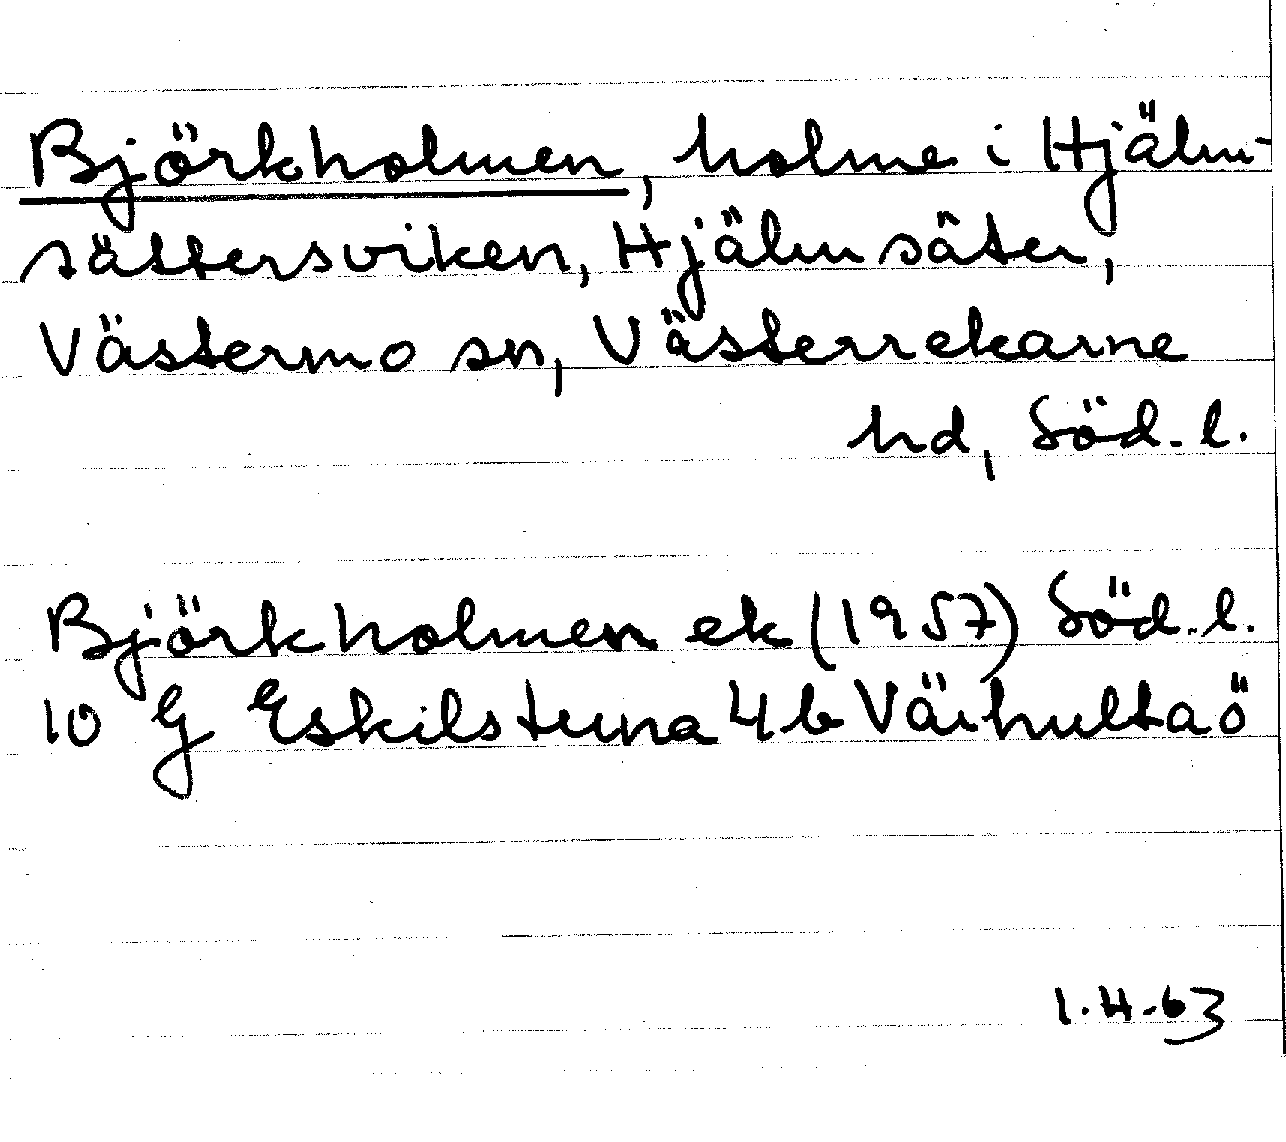 Björkholmen, holme i Hjälm-
sättersviken, Hjälmsäter,
Västermo sn, Västerrekarne
hd, Söd. l.
Björkholmen ek (1957) Söd. l.
10 G Eskilstuna 4b Väihultaö
1.4.63